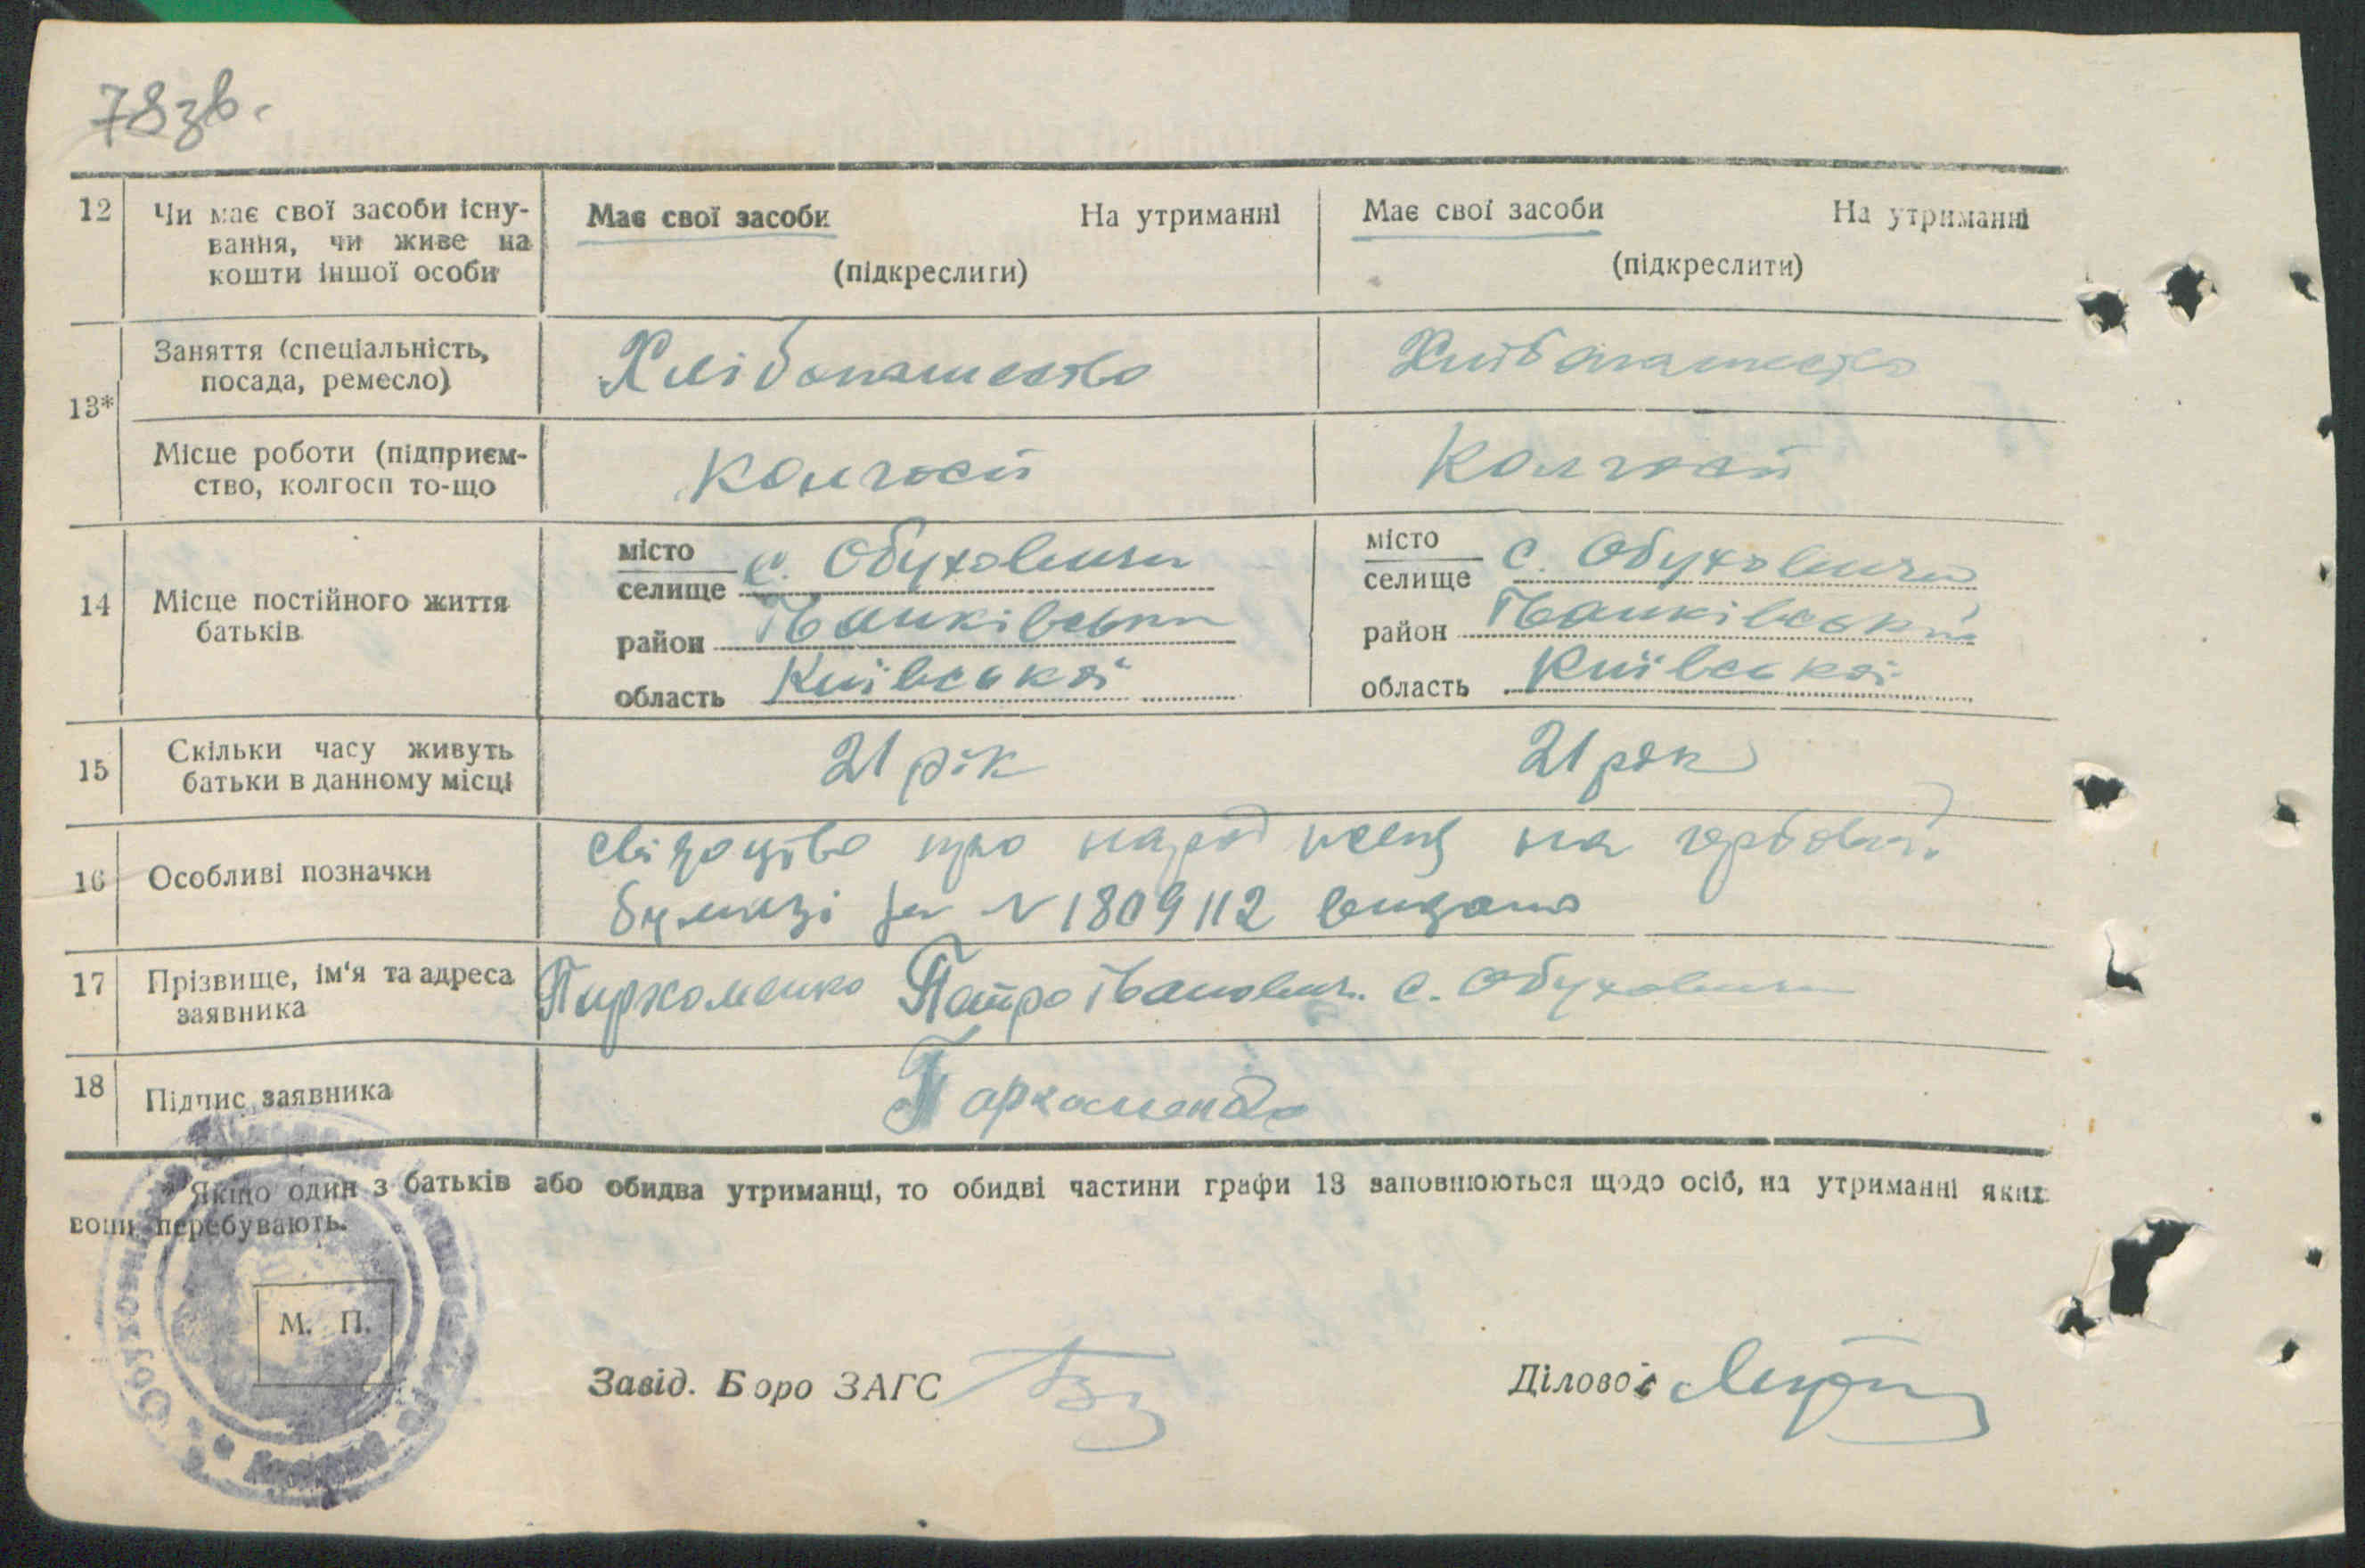 78зв.
12 Чи має свої засоби існу- Має свої засоби На утриманні Має свої засоби На утриманні
вання, чи живе на
кошти іншої особи (підкреслити) (підкреслити)
Заняття (спеціальність, Хлібопашество Хлібопашество
посада, ремесло)
13*
Місце роботи (підприєм- Колгосп Колгосп
ство, колгосп то-що
місто с. Обуховичи місто с. Обуховичи
селище селище
14 Місце постійного життя район Іванківський район Іванківський
батьків
область Київської область Київської
15 Скільки часу живуть 21 рік 21 рік
батьки в данному місці
16 Особливі позначки свідоцтво про народження на гербовій
бумазі за № 1809112 видано
17 Прізвище, ім'я та адреса Пархоменко Петро Іванович. с. Обуховичи
заявника
18 Підпис заявника Пархоменко
* Якщо один з батьків або обидва утриманці, то обидві частини графи 13 заповнюються щодо осіб, на утриманні яких
вони перебувають.
М. П.
Завід. Боро ЗАГС Діловод